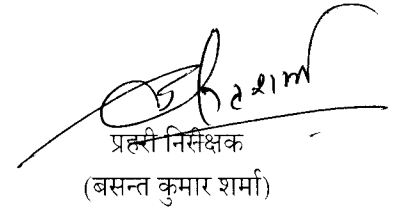 प्रहरी निरीक्षक
(बसन्त कुमार शर्मा)